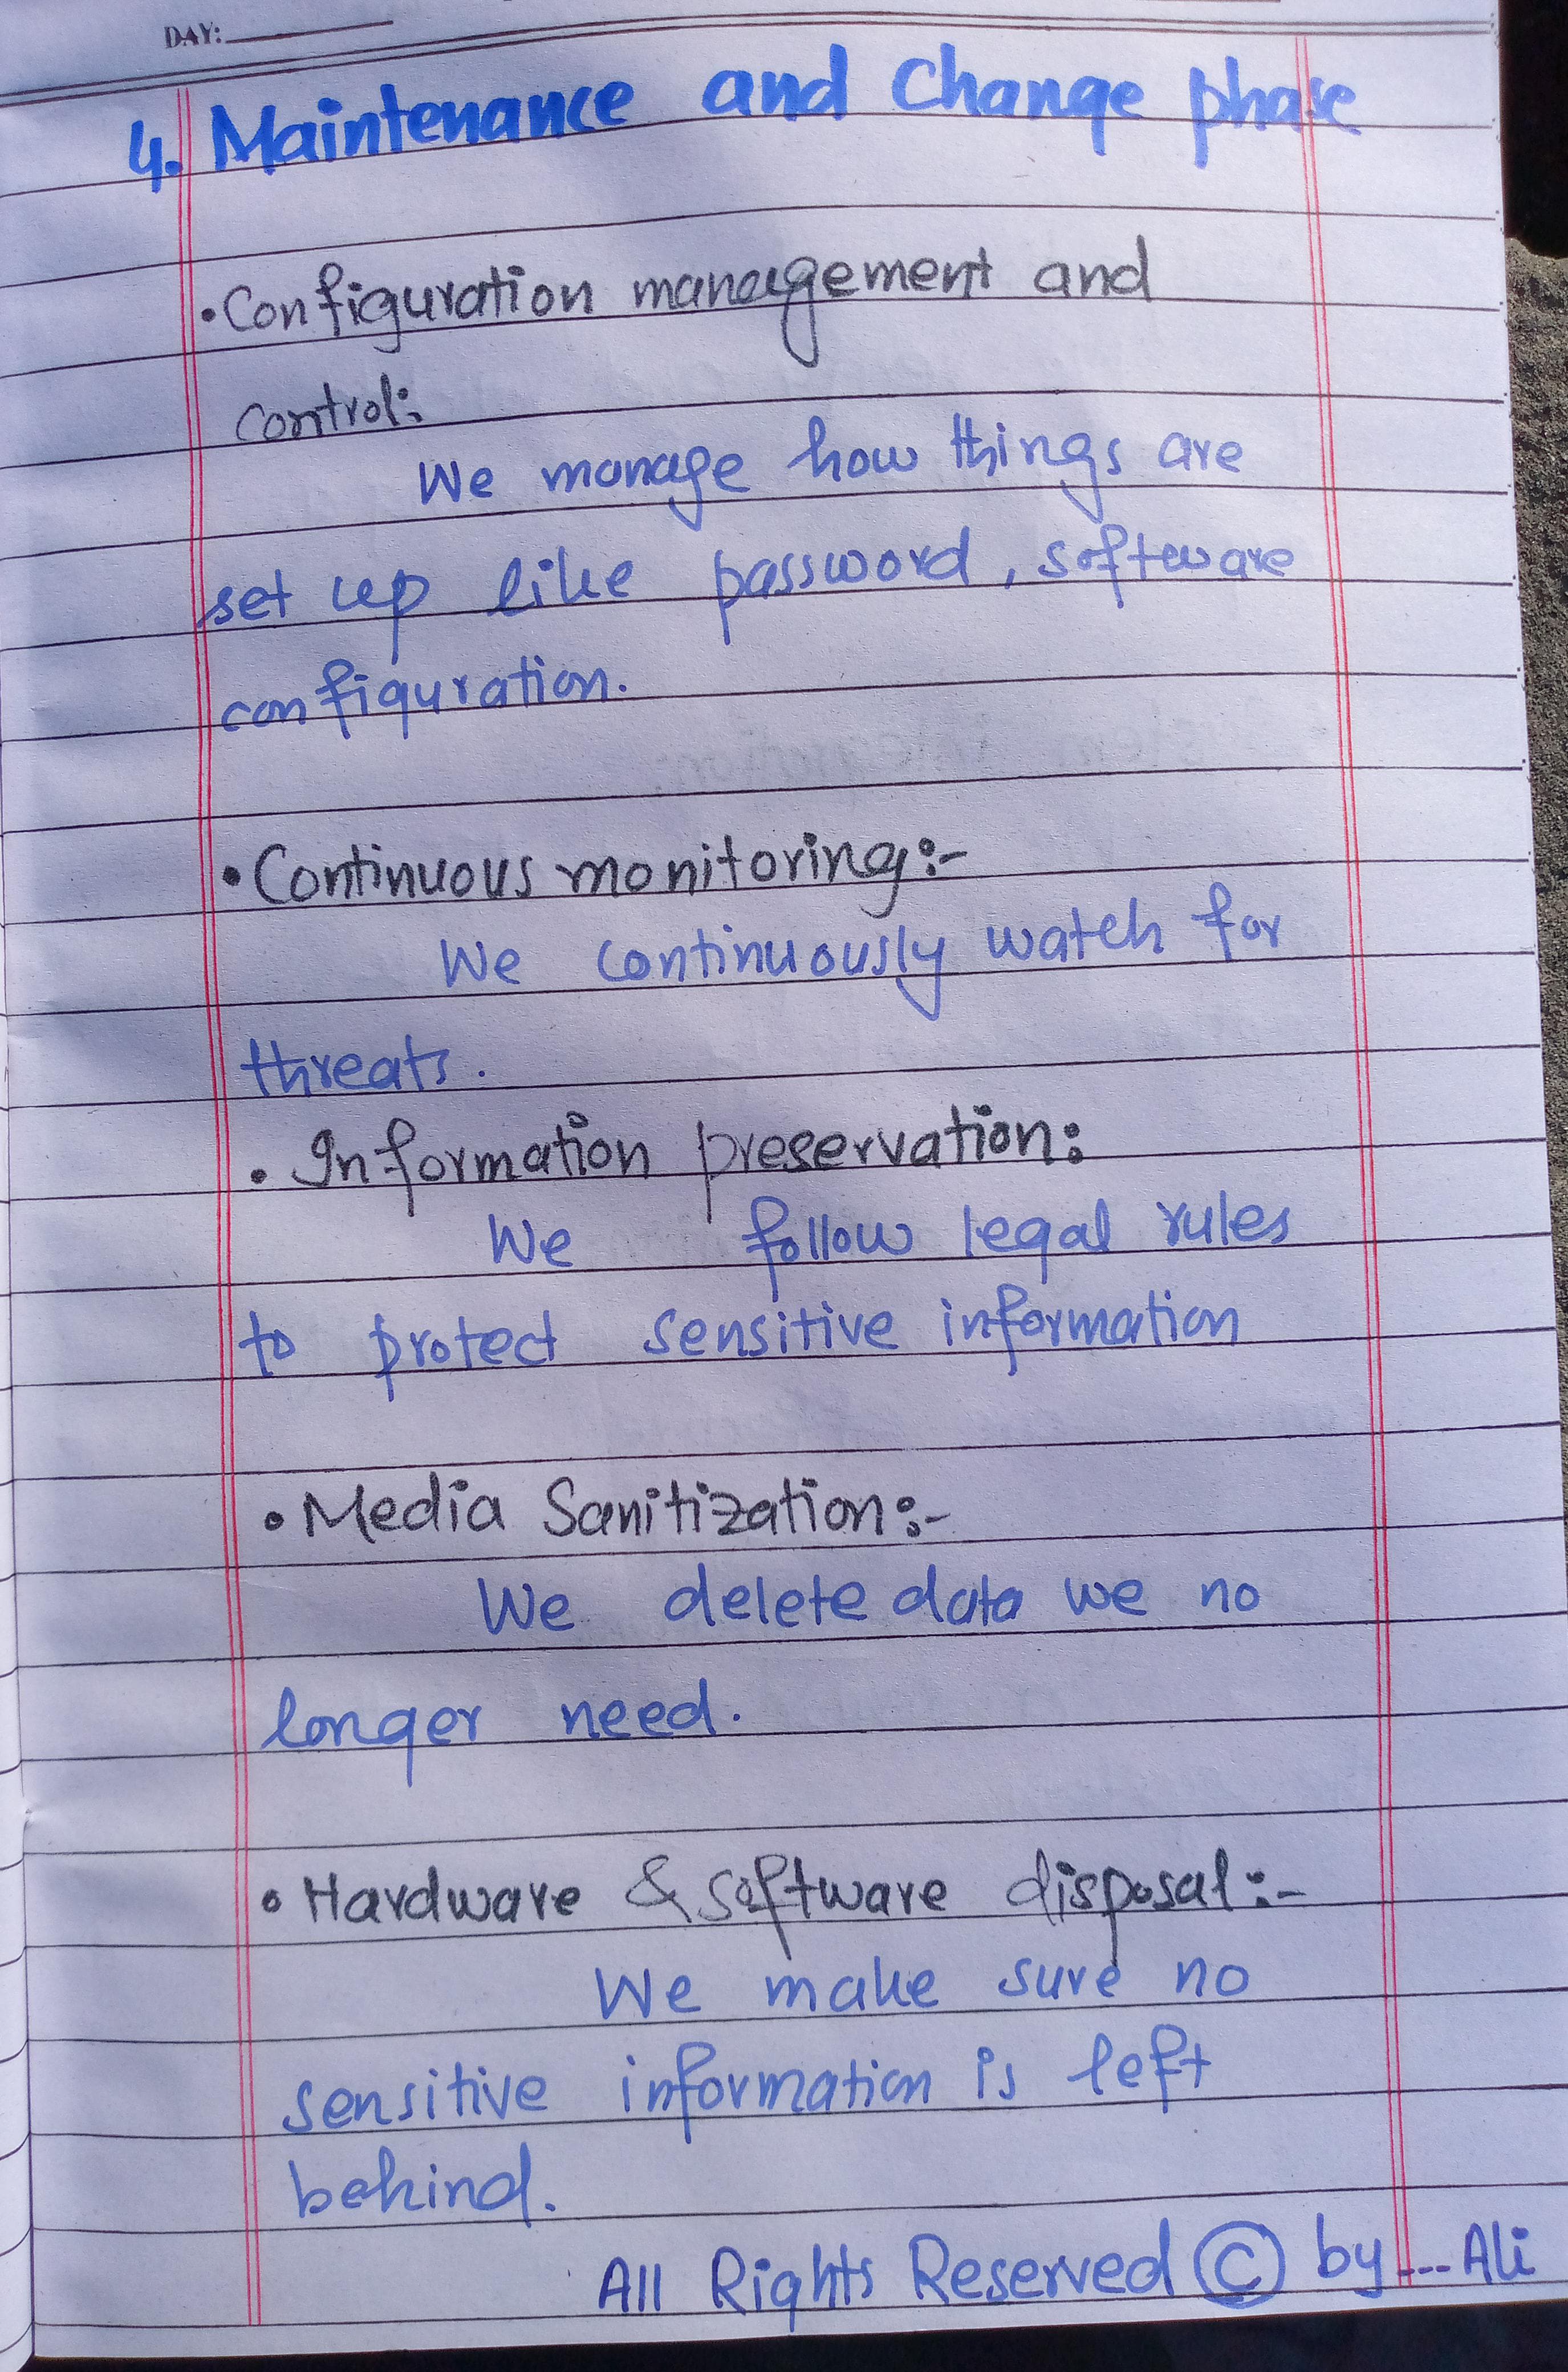 DAY:
4. Maintenance and Change phase
• Configuration management and
control:
We manage how things are
set up like password, software
configuration.
• Continuous monitoring:-
We continuously watch for
threats.
• Information preservation:
We follow legal rules
to protect sensitive information
• Media Sanitization:-
We delete data we no
longer need.
• Hardware & software disposal:-
We make sure no
sensitive information is left
behind.
All Rights Reserved © by ... Ali